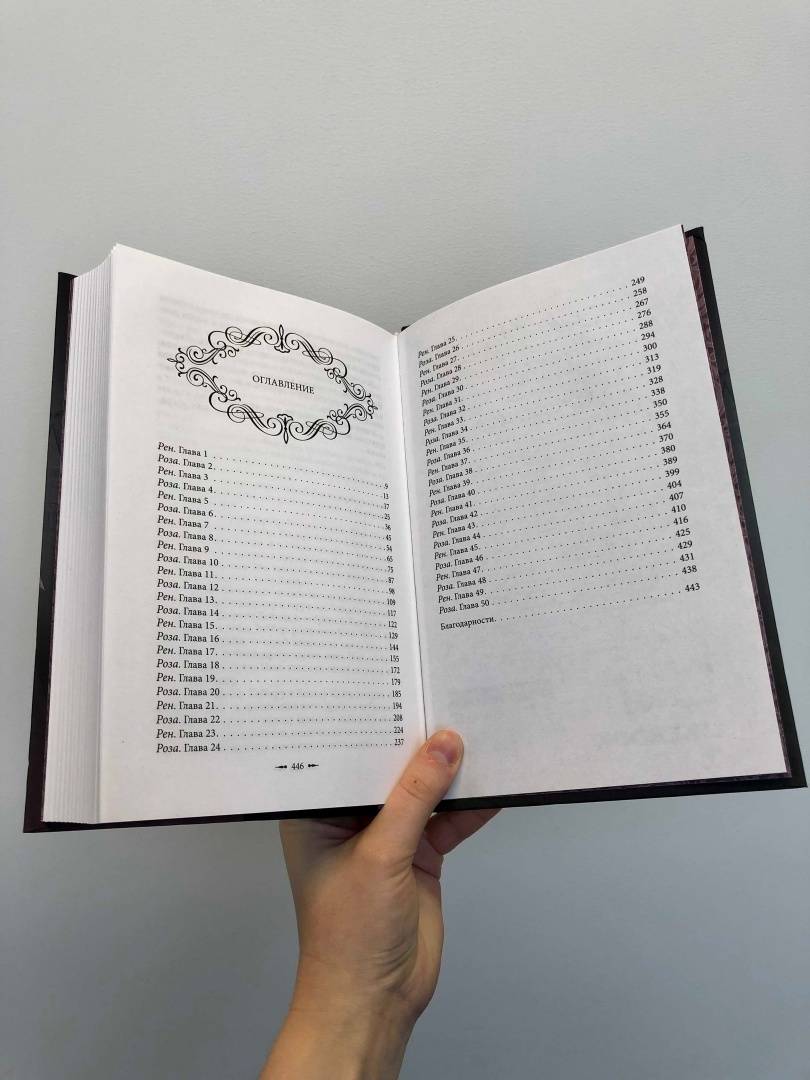 ОГЛАВЛЕНИЕ
Рен. Глава 1 . . . 9
Роза. Глава 2 . . . 13
Рен. Глава 3 . . . 17
Роза. Глава 4 . . . 25
Рен. Глава 5 . . . 36
Роза. Глава 6 . . . 45
Рен. Глава 7 . . . 54
Роза. Глава 8 . . . 65
Рен. Глава 9 . . . 75
Роза. Глава 10 . . . 87
Рен. Глава 11 . . . 98
Роза. Глава 12 . . . 109
Рен. Глава 13 . . . 117
Роза. Глава 14 . . . 122
Рен. Глава 15 . . . 129
Роза. Глава 16 . . . 144
Рен. Глава 17 . . . 155
Роза. Глава 18 . . . 172
Рен. Глава 19 . . . 179
Роза. Глава 20 . . . 185
Рен. Глава 21 . . . 194
Роза. Глава 22 . . . 208
Рен. Глава 23 . . . 224
Роза. Глава 24 . . . 237
446
Рен. Глава 25 . . . 249
Роза. Глава 26 . . . 258
Рен. Глава 27 . . . 267
Роза. Глава 28 . . . 276
Рен. Глава 29 . . . 288
Роза. Глава 30 . . . 294
Рен. Глава 31 . . . 300
Роза. Глава 32 . . . 313
Рен. Глава 33 . . . 319
Роза. Глава 34 . . . 328
Рен. Глава 35 . . . 338
Роза. Глава 36 . . . 350
Рен. Глава 37 . . . 355
Роза. Глава 38 . . . 364
Рен. Глава 39 . . . 370
Роза. Глава 40 . . . 380
Рен. Глава 41 . . . 389
Роза. Глава 42 . . . 399
Рен. Глава 43 . . . 404
Роза. Глава 44 . . . 407
Рен. Глава 45 . . . 410
Роза. Глава 46 . . . 416
Рен. Глава 47 . . . 425
Роза. Глава 48 . . . 429
Рен. Глава 49 . . . 431
Роза. Глава 50 . . . 438
Благодарности . . . 443